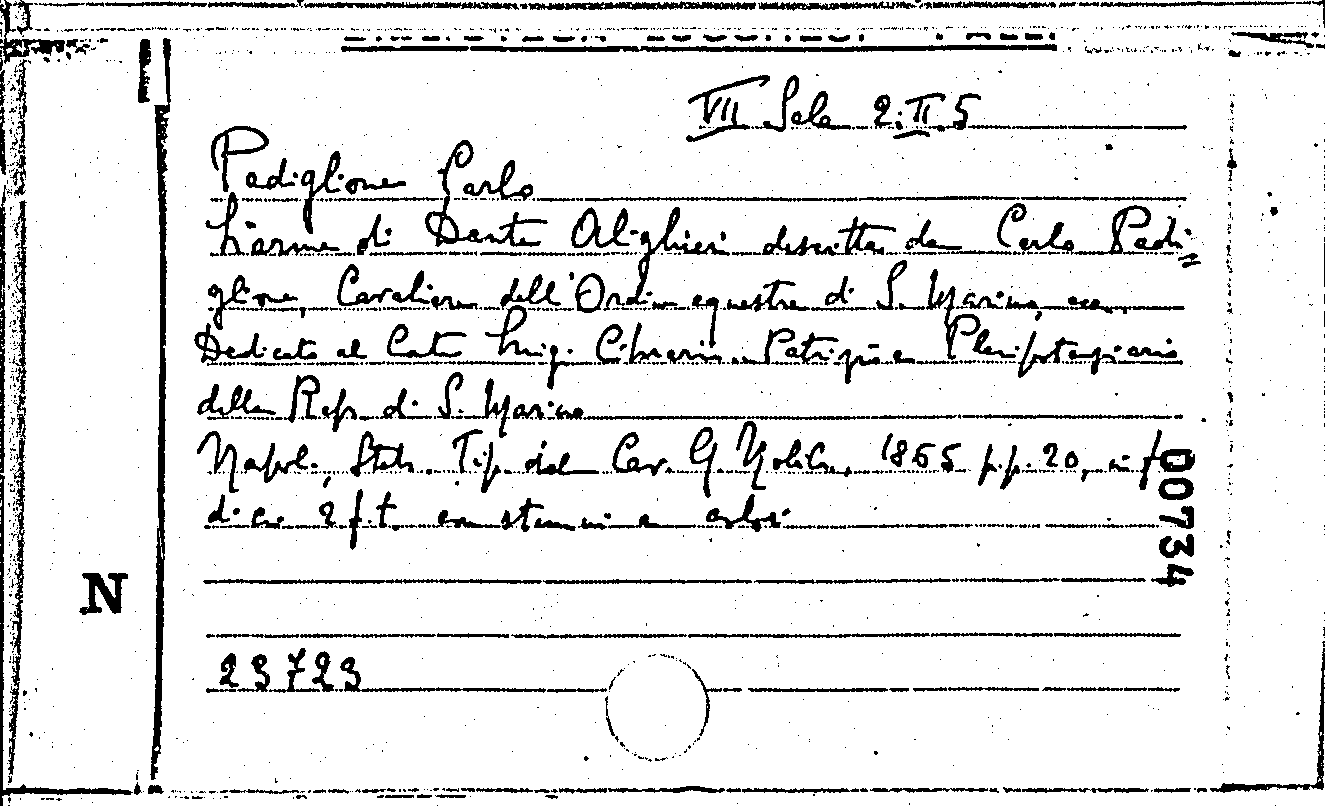 BIBLIOTECA LUCCHESI - PALLI
VII Sala 2.II.5
Padiglione Carlo
L'arme di Dante Alighieri descritta da Carlo Padi=
glione, Cavaliere dell'Ordine equestre di S. Marino, ecc.
Dedicato al Luigi Cibrario. Patrizio e Plenipotenziario
della Rep. di S. Marino
Napoli, Stab. Tip. del Cav. G. Nobile, 1865 p.p. 20, in f
di cc. 2 f.t. con stemmi a colori
00734
N
23723